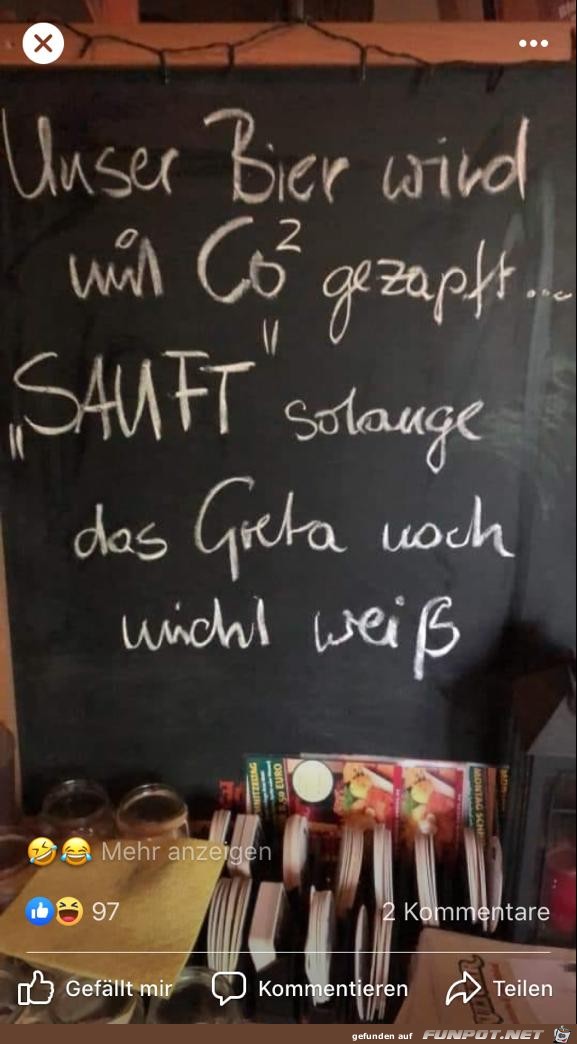 Unser Bier wird
mit Co² gezapft...
„SAUFT" solange
das Greta noch
nicht weiß
50 EURO
MONTAG SCH
🤣😂 Mehr anzeigen
97
2 Kommentare
Gefällt mir
Kommentieren
Teilen
gefunden auf FUNPOT.NET